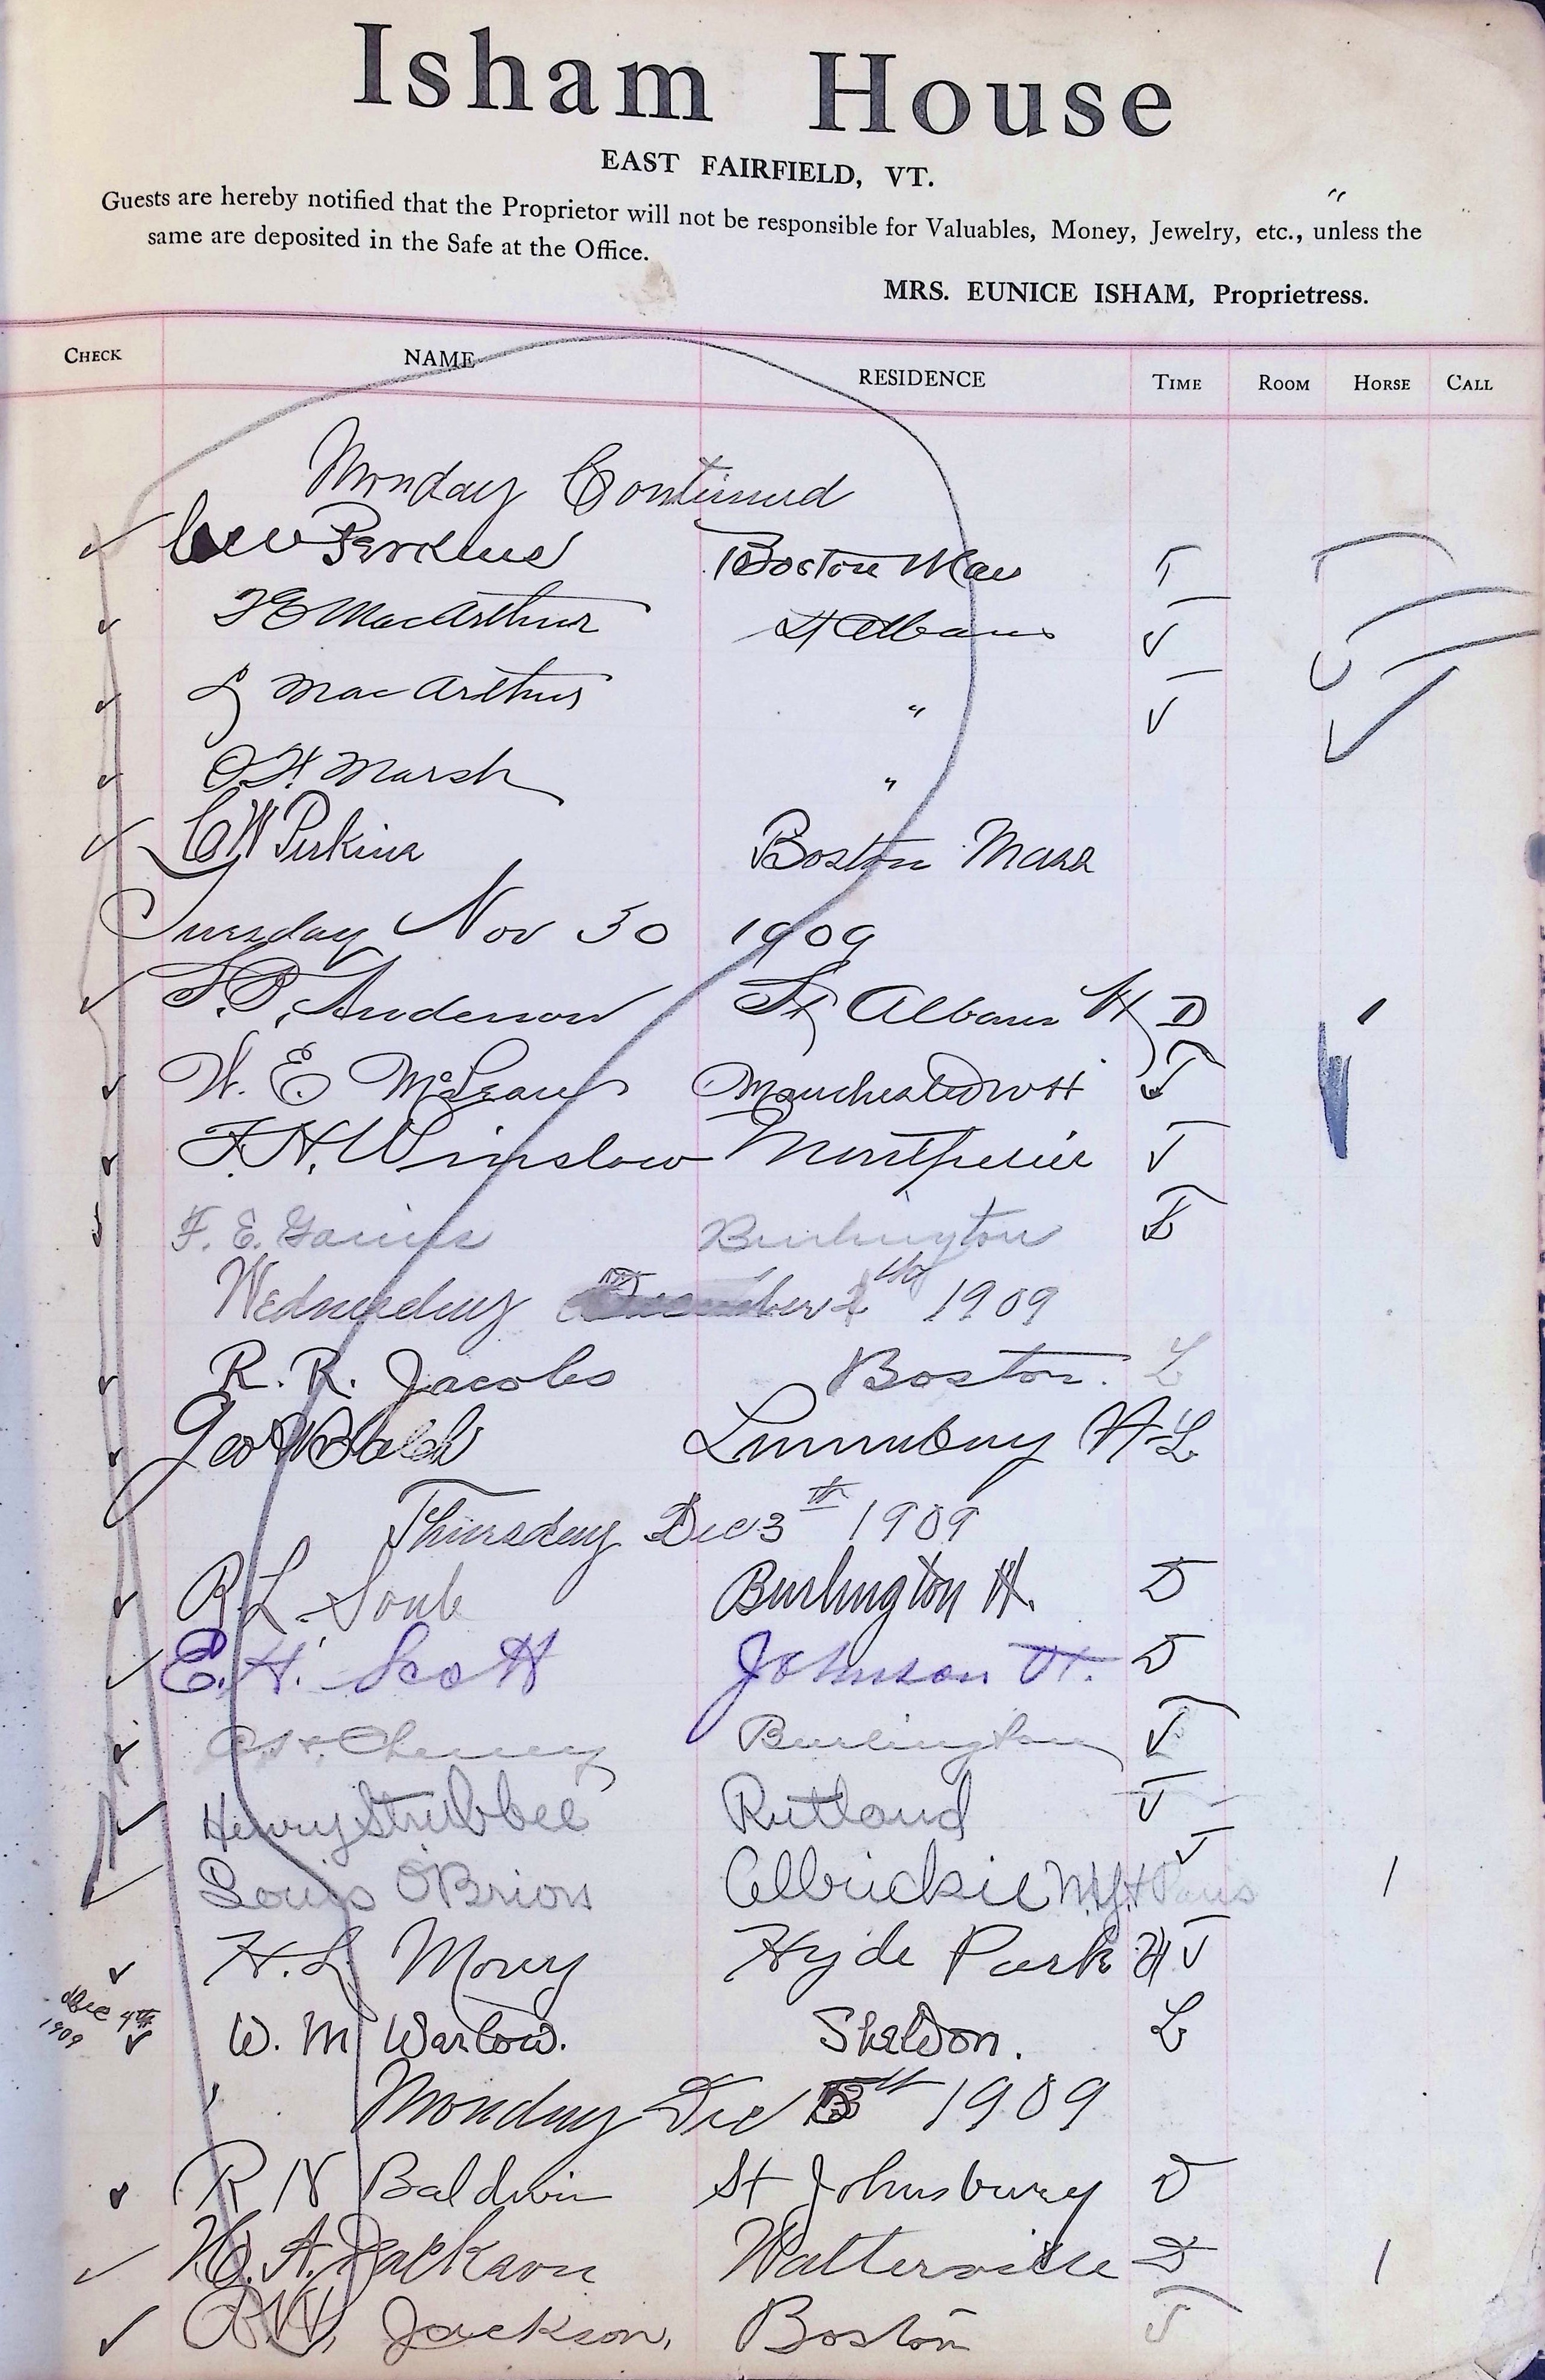 Isham House
EAST FAIRFIELD, VT.
Guests are hereby notified that the Proprietor will not be responsible for Valuables, Money, Jewelry, etc., unless the
same are deposited in the Safe at the Office.
MRS. EUNICE ISHAM, Proprietress.
CHECK NAME RESIDENCE TIME ROOM HORSE CALL
Monday Continued
Perkins Boston Mass T
MacArthur St Albans T
MacArthur " T
O.H. Marsh "
C W Perkins Boston Mass
Tuesday Nov 30 1909
Anderson St Albans Vt D
W. E. McLean Manchester N H T
F. H. Winslow Montpelier T
F. E. Burlington L
Wednesday 1909
R. R. Jacobs Boston. L
Geo W Balch Lunenburg Vt L
Thursday Dec 3th 1909
R. L. Soule Burlington Vt. D
E. H. Scott Johnson Vt. D
Cheney Burlington T
Henry Strubbel Rutland T
Louis O'Brion N.Y. T
H. L. Mory Hyde Park Vt T
Dec 4th
1909
W. M Warlow. Sheldon. L
Monday Dec 1909
R N Baldwin St Johnsbury D
A. Jackson Watterville D
Jackson, Boston T